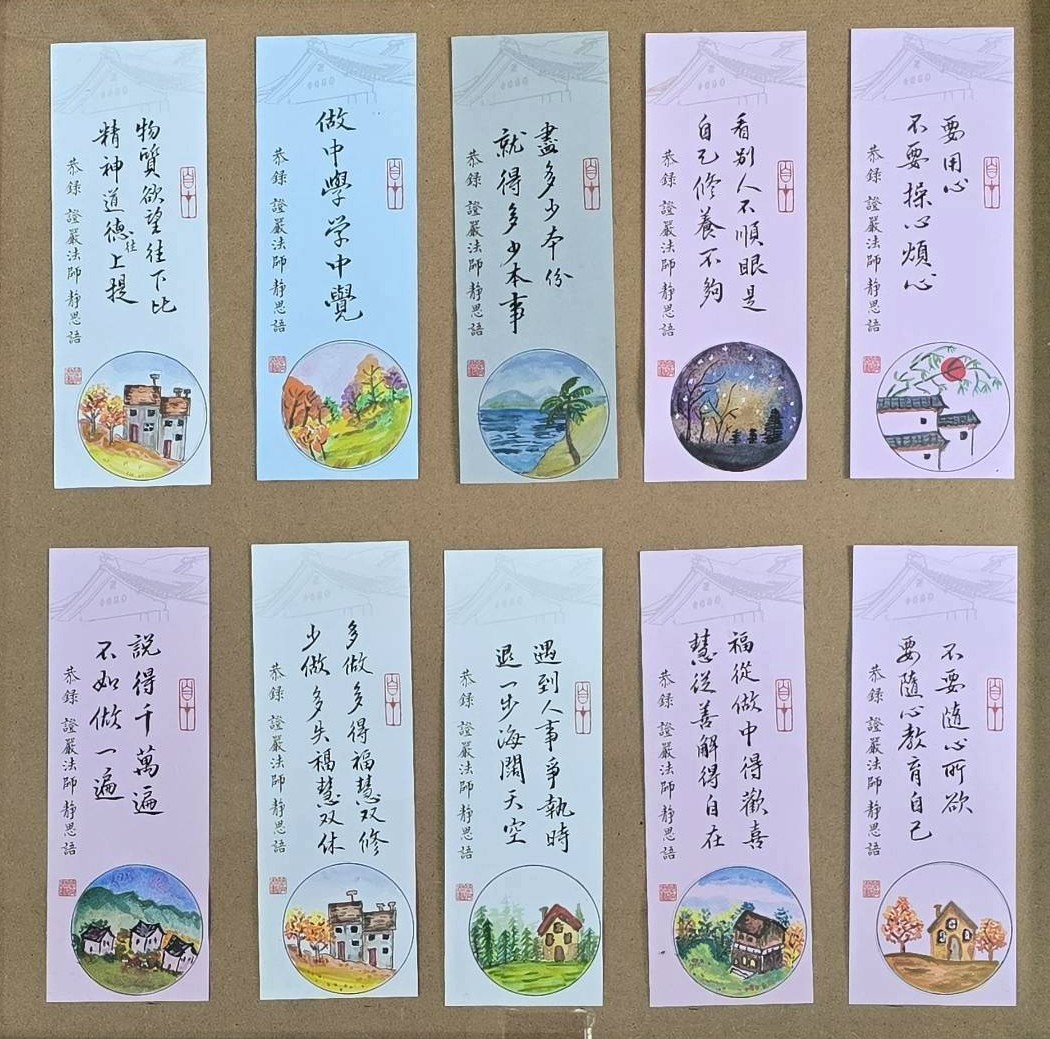 物質欲望往下比
精神道德往上提
恭錄 證嚴法師靜思語
做中學学中覺
恭錄 證嚴法師靜思語
盡多少本份
就得多少本事
恭錄 證嚴法師靜思語
看別人不順眼是
自己修養不夠
恭錄 證嚴法師靜思語
要用心
不要操心煩心
恭錄 證嚴法師靜思語
說得千萬遍
不如做一遍
恭錄 證嚴法師靜思語
多做多得福慧双修
少做多失福慧双休
恭錄 證嚴法師靜思語
遇到人事爭執時
退一步海闊天空
恭錄 證嚴法師靜思語
福從做中得歡喜
慧從善解得自在
恭錄 證嚴法師靜思語
不要隨心所欲
要隨心教育自己
恭錄 證嚴法師靜思語